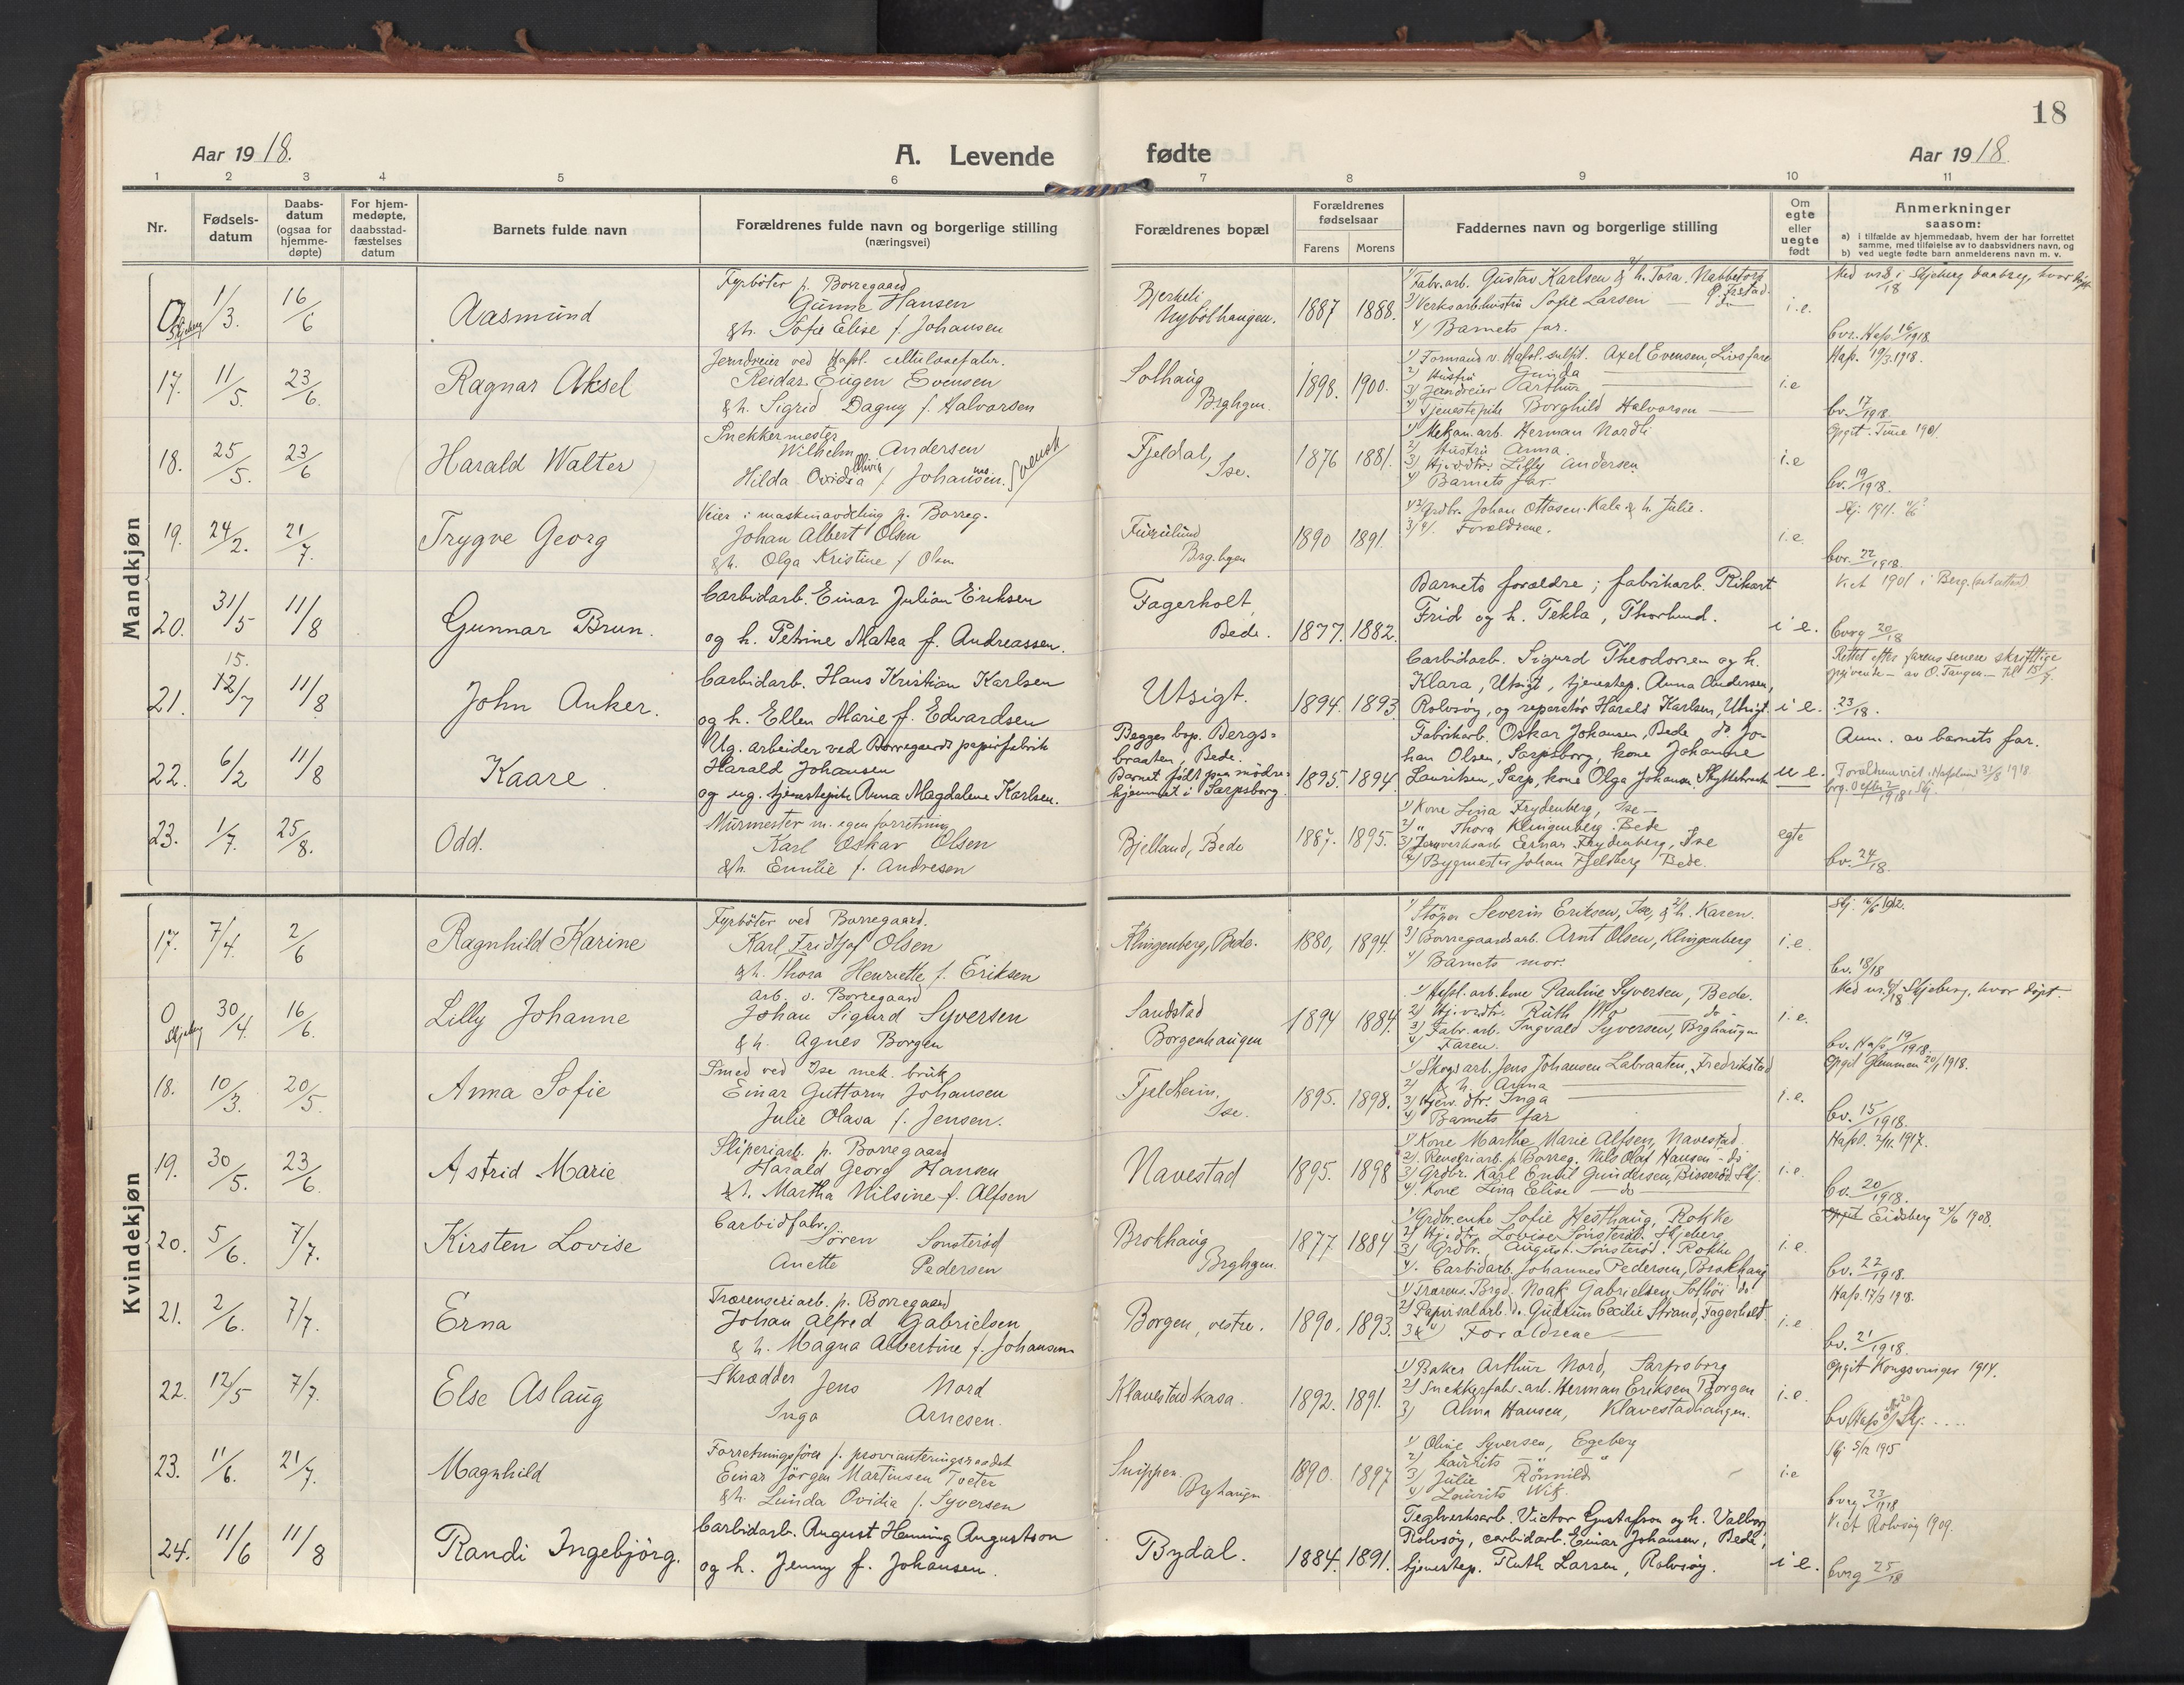 18
Aar 1918.
A. Levende fødte
Aar 1918.
1 2 3 4 5 6 7 8 9 10 11
Nr.
Fødsels-
datum
Daabs-
datum
(ogsaa for
hjemme-
døpte)
For hjem-
medøpte,
daabsstad-
fæstelses
datum
Barnets fulde navn
Forældrenes fulde navn og borgerlige stilling
(næringsvei)
Forældrenes bopæl
Forældrenes
fødselsaar
Farens Morens
Faddernes navn og borgerlige stilling
Om
egte
eller
uegte
født
Anmerkninger
saasom:
a) i tilfælde av hjemmedaab, hvem der har forrettet
samme, med tilføielse av to daabsvidners navn, og
b) ved uegte fødte barn anmelderens navn m. v.
Mandkjøn
0 Skjeberg
1/3.
16/6
Aasmund
Fyrbøter p. Borregaard
Gunne Hansen
& h. Sofie Elise f. Johansen
Bjerkeli
Nybölhaugen.
1887 1888.
1/ Fabr. arb. Gustav Karlsen & 2/ h. Tora. Nabbetorp
3/ Verksarb.hustru Sofie Larsen
4/ Barnets far.
i.e.
17.
11/5.
23/6.
Ragnar Aksel
Jerndreier ved Hafsl. cellulosefabr.
Reidar Eugen Evensen
& h. Sigrid Dagny f. Halvorsen
Solhaug
Brghgen.
1898. 1900.
1/ Formand v. Hafsl. sulfit. Axel Evensen,
2/ Hustru Gunda
3/ Jerndreier Arthur
4/ Tjenestepike Borghild Halvorsen
i.e
Hafs. 19/3 1918.
bv. 17/1918.
18.
25/5.
23/6
Harald Walter
Snekkermester
Wilhelm Andersen
Hilda Ovidia Olivia f. Johansen. Svensk
Fjeldal,
Ise.
1876 1881.
1/ Mekan. arb. Herman Nordli
2/ Hustru Anna.
3/ Hjv.dtr. Lilly Andersen
4/ Barnets far.
i.e
Opgit. Tune 1901.
bv. 19/1918.
19.
24/2.
21/7.
Trygve Georg
Veier i maskinavdeling p. Borreg.
Johan Albert Olsen
& h. Olga Kristine f. Olsen
Furulund
Brg.hgen
1890 1891.
1/ 2/ Grdbr. Johan Ottosen. Kala & h. Julie.
3/ 4/. Forældrene.
i.e.
bv. 22/1918.
20.
31/5
11/8
Gunnar Brun.
Carbidarb. Einar Julian Eriksen
og h. Petrine Matea f. Andreassen.
Fagerholt,
Bede.
1877. 1882.
Barnets forældre; fabrikarb. Rikart
Frid og h. Tekla, Thorlund.
i e.
Viet 1901 i Berg.
borg 20/18
21.
15.
12/7
11/8
John Anker.
Carbidarb. Hans Kristian Karlsen
og h. Ellen Marie f. Edvardsen
Utsigt.
1894. 1893.
Carbidarb. Sigurd Theodorsen og h.
Klara, Utsigt, tjenestep. Anna Andersen,
Rolvsöy, og reparatör Harald Karlsen, Utsigt.
i e.
Rettet efter farens senere skriftlige
opgivende - av O. Tangen - til 15/7.
23/18.
22.
6/2
11/8
Kaare
Ug. arbeider ved Borregaards papirfabrik
Harald Johansen
og ug. tjenestepike Anna Magdalene Karlsen.
Begges bop. Bergs=
braaten, Bede.
Barnet födt paa mödre=
hjemmet i Sarpsborg.
1895. 1894.
Fabrikarb. Oskar Johansen, Bede do Jo=
han Olsen, Sarpsborg, kone Johanne
Lauritsen, Sarp, kone Olga Johansen Skyttebraaten
u e.
Anm. av barnets far.
Forældrene viet i Hafslund 31/8 1918.
23.
1/7.
25/8.
Odd.
Murmester m. egen forretning
Karl Oskar Olsen
& h. Emilie f. Andresen
Bjelland, Bede
1887. 1895.
1/ Kone Lina Frydenberg, Ise -
2/ " Thora Klingenberg. Bede
3/ Jernverksarb Einar Frydenberg, Ise
4/ Bygmester Johan Fjeldberg Bede.
egte
bv. 24/18.
Kvindekjøn
17.
7/4.
2/6
Ragnhild Karine
Fyrböter ved Borregaard.
Karl Fridtjof Olsen
& h. Thora Henriette f. Eriksen
Klingenberg, Bede.
1880, 1894.
1/ Stöper Severin Eriksen, Ise, & 2/ h. Karen.
3/ Borregaardsarb. Arnt Olsen, Klingenberg
4/ Barnets mor.
i.e.
bv. 18/18
0 Skjeberg
30/4.
16/6.
Lilly Johanne
arb. v. Borregaard
Johan Sigurd Syversen
& h. Agnes Borgen
Sandstad
Borgenhaugen
1894 1884.
1/ Hafsl. arb. kone Pauline Syversen, Bede.
2/ Hj.v.dtr. Ruth Mo - do -
3/ Fabr. arb. Ingvald Syversen, Brghaugen
4/ Faren.
i.e.
bv. Hafs 19/1918.
18.
10/3.
20/5.
Anna Sofie
Smed ved Ise mek. bruk
Einar Guttorm Johansen
Julie Olava f. Jensen.
Fjeldheim,
Ise.
1895. 1898.
1/ Skogsarb. Jens Johansen Labraaten, Fredrikstad
2/ & h. Anna
3/ Hjem. dtr. Inga
4/ Barnets far
i.e.
Opgit Glemmen 20/1 1918.
bv. 15/1918.
19.
30/5.
23/6.
Astrid Marie
Sliperiarb. p. Borregaard
Harald Georg Hansen
& h. Martha Nilsine f. Alfsen
Navestad
1895. 1898
1/ Kone Marthe Marie Alfsen, Navestad
2/. Renseriarb. p. Borreg. Nils Olaf Hansen - do
3/ Grdbr. Karl Emil Gundersen, Bisseröd Skj.
4/. Kone Lina Elise - do -
i.e.
Hafsl. 2/11 1917.
bv. 20/1918.
20.
5/6.
7/7.
Kirsten Lovise
Carbidfabr.
Sören Sonsteröd
Anette Pedersen
Brokhaug
Brghgen.
1877 1884
1/ Grdbr.enke Sofie Hesthaug, Rokke
2/ Hj.dtr. Lovise Sönsteröd. Skjeberg
3/ Grdbr. August Sönsteröd. Rokke
4/. Carbidarb. Johannes Pedersen, Brokhaug
i.e.
Opgit Eidsberg 24/6 1908.
bv. 22/1918.
21.
2/6.
7/7.
Erna
Trærenseriarb. p. Borregaard
Johan Alfred Gabrielsen
& h. Magna Albertine f. Johansen
Borgen, vestre.
1890. 1893.
1/ Trærens. Brgd. Noak Gabrielsen, Solhöi do
2/ Papirsalarb. do. Gudrun Cecilie Strand, Fagerholt
3 & 4/ Forældrene
i.e
Hafs. 17/3 1918.
bv. 21/1918.
22.
12/5
7/7.
Else Aslaug
Skrædder Jens Nord
Inga Arnesen.
Klavestadkasa.
1892. 1891.
1/ Baker Arthur Nord, Sarpsborg
2/ Snekkerfabr. arb. Herman Eriksen Borgen
3/ Alma Hansen, Klavestadhaugen.
i.e.
Opgit Kongsvinger 1914.
23.
11/6.
21/7.
Magnhild
Forretningsförer f. provianteringsraadet
Einar Jörgen Martinsen Tveter
& h. Lunda Ovidia f. Syversen
Snippen
Brghaugen
1890. 1897
1/ Oline Syversen, Egeberg
2/ Laurits - " - "
3/ Julie Rönnild
4/ Laurits Wik.
i.e
Skj 5/12 1915
borg 23/1918
24.
11/6
11/8
Randi Ingebjörg.
Carbidarb. August Henning Augustson
og h. Jenny f. Johansen.
Bydal.
1884. 1891.
Teglverksarb. Victor Gustafson og h. Valborg
Rolvsöy, carbidarb. Einar Johansen, Bede,
tjenestep. Ruth Larsen, Rolvsöy.
i e.
Viet Rolvsöy 1909.
borg 25/18